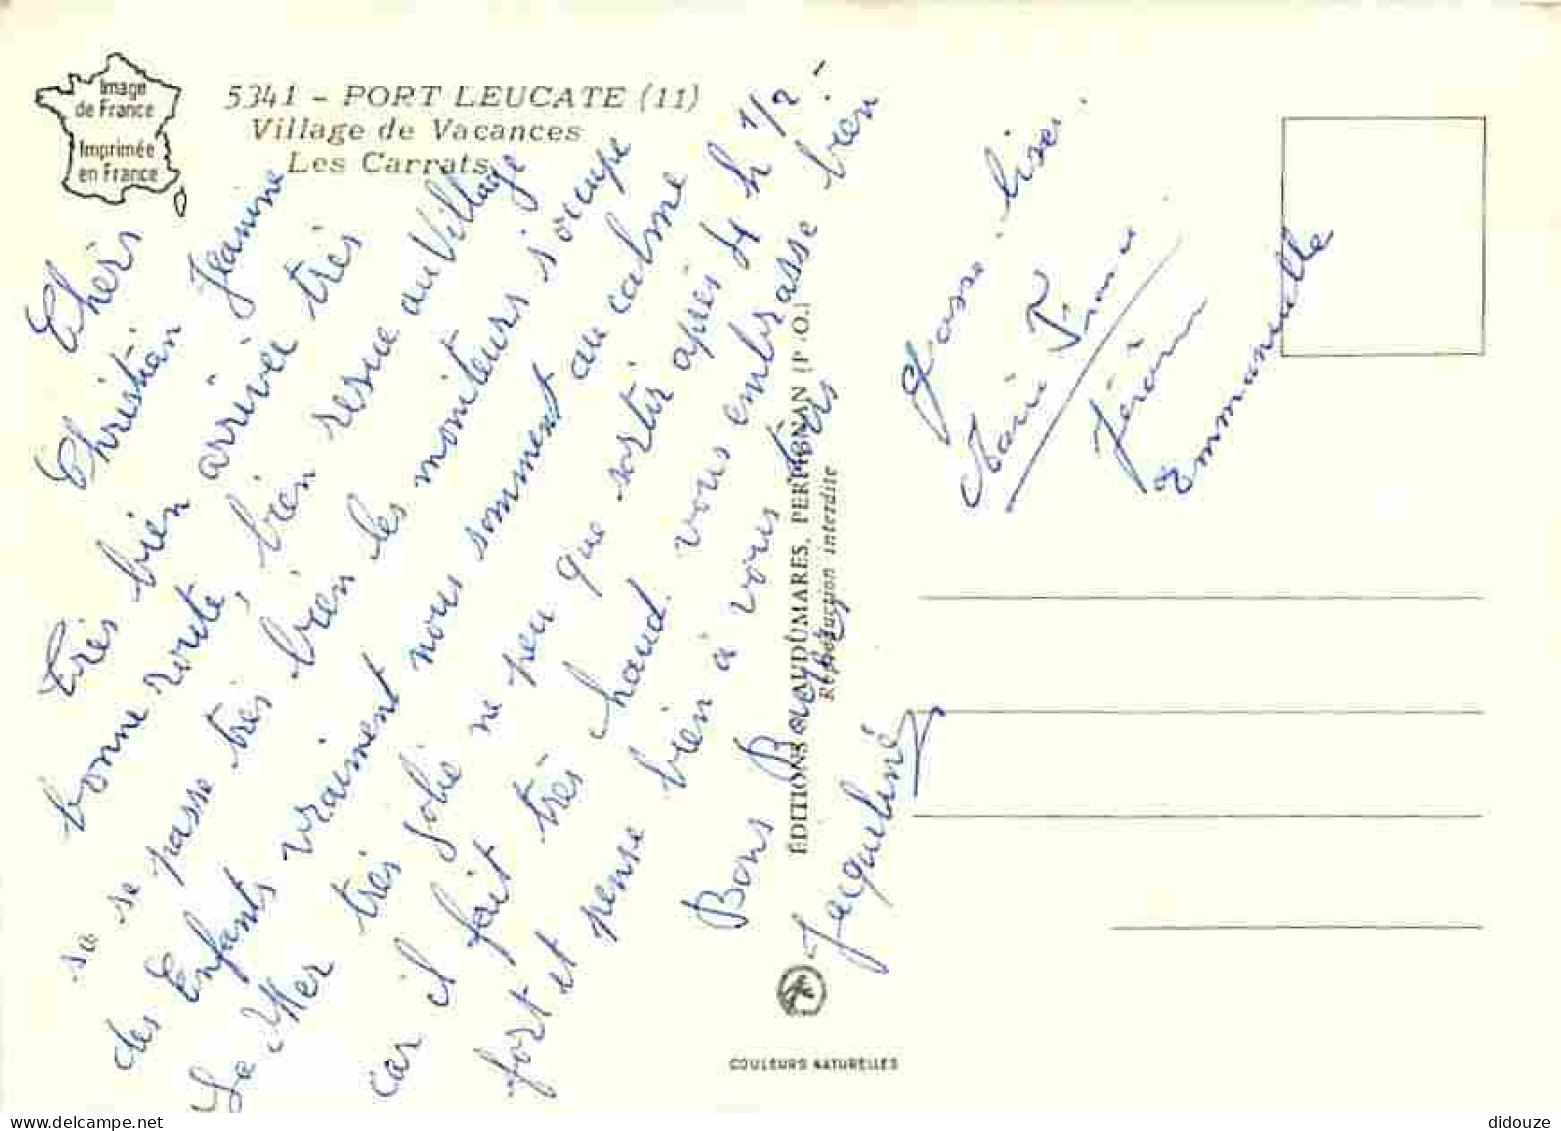 Image
de France
Imprimée
en France
5341 - PORT LEUCATE (11)
Village de Vacances
Les Carrats
Chers
Christian Jeanine
Très bien arriver très
bonne route, bien resue au Village
sa se passe très bien les moniteurs s'occupe
des Enfants vraiment nous somment au calme
La Mer très jolie ne peu que sortir après 4 h 1/2 !
car il fait très chaud. vous embrasse bien
fort et pense bien à vous tres
Bons Baisers
Jacqueline
Marie France
Jérôme
Emmanuelle
EDITIONS GAUDUMARES, PERPIGNAN (P.-O.)
Reproduction interdite
COULEURS NATURELLES
didouze